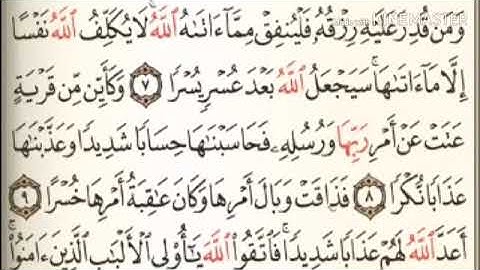 KINEMASTER
وَمَن قُدِرَ عَلَيْهِ رِزْقُهُۥ فَلْيُنفِقْ مِمَّآ ءَاتَىٰهُ ٱللَّهُ ۚ لَا يُكَلِّفُ ٱللَّهُ نَفْسًا
إِلَّا مَآ ءَاتَىٰهَا ۚ سَيَجْعَلُ ٱللَّهُ بَعْدَ عُسْرٍ يُسْرًا ۝٧ وَكَأَيِّن مِّن قَرْيَةٍ
عَتَتْ عَنْ أَمْرِ رَبِّهَا وَرُسُلِهِۦ فَحَاسَبْنَٰهَا حِسَابًا شَدِيدًا وَعَذَّبْنَٰهَا
عَذَابًا نُّكْرًا ۝٨ فَذَاقَتْ وَبَالَ أَمْرِهَا وَكَانَ عَٰقِبَةُ أَمْرِهَا خُسْرًا ۝٩
أَعَدَّ ٱللَّهُ لَهُمْ عَذَابًا شَدِيدًا ۖ فَٱتَّقُوا۟ ٱللَّهَ يَٰٓأُو۟لِى ٱلْأَلْبَٰبِ ٱلَّذِينَ ءَامَنُوا۟ ۚ